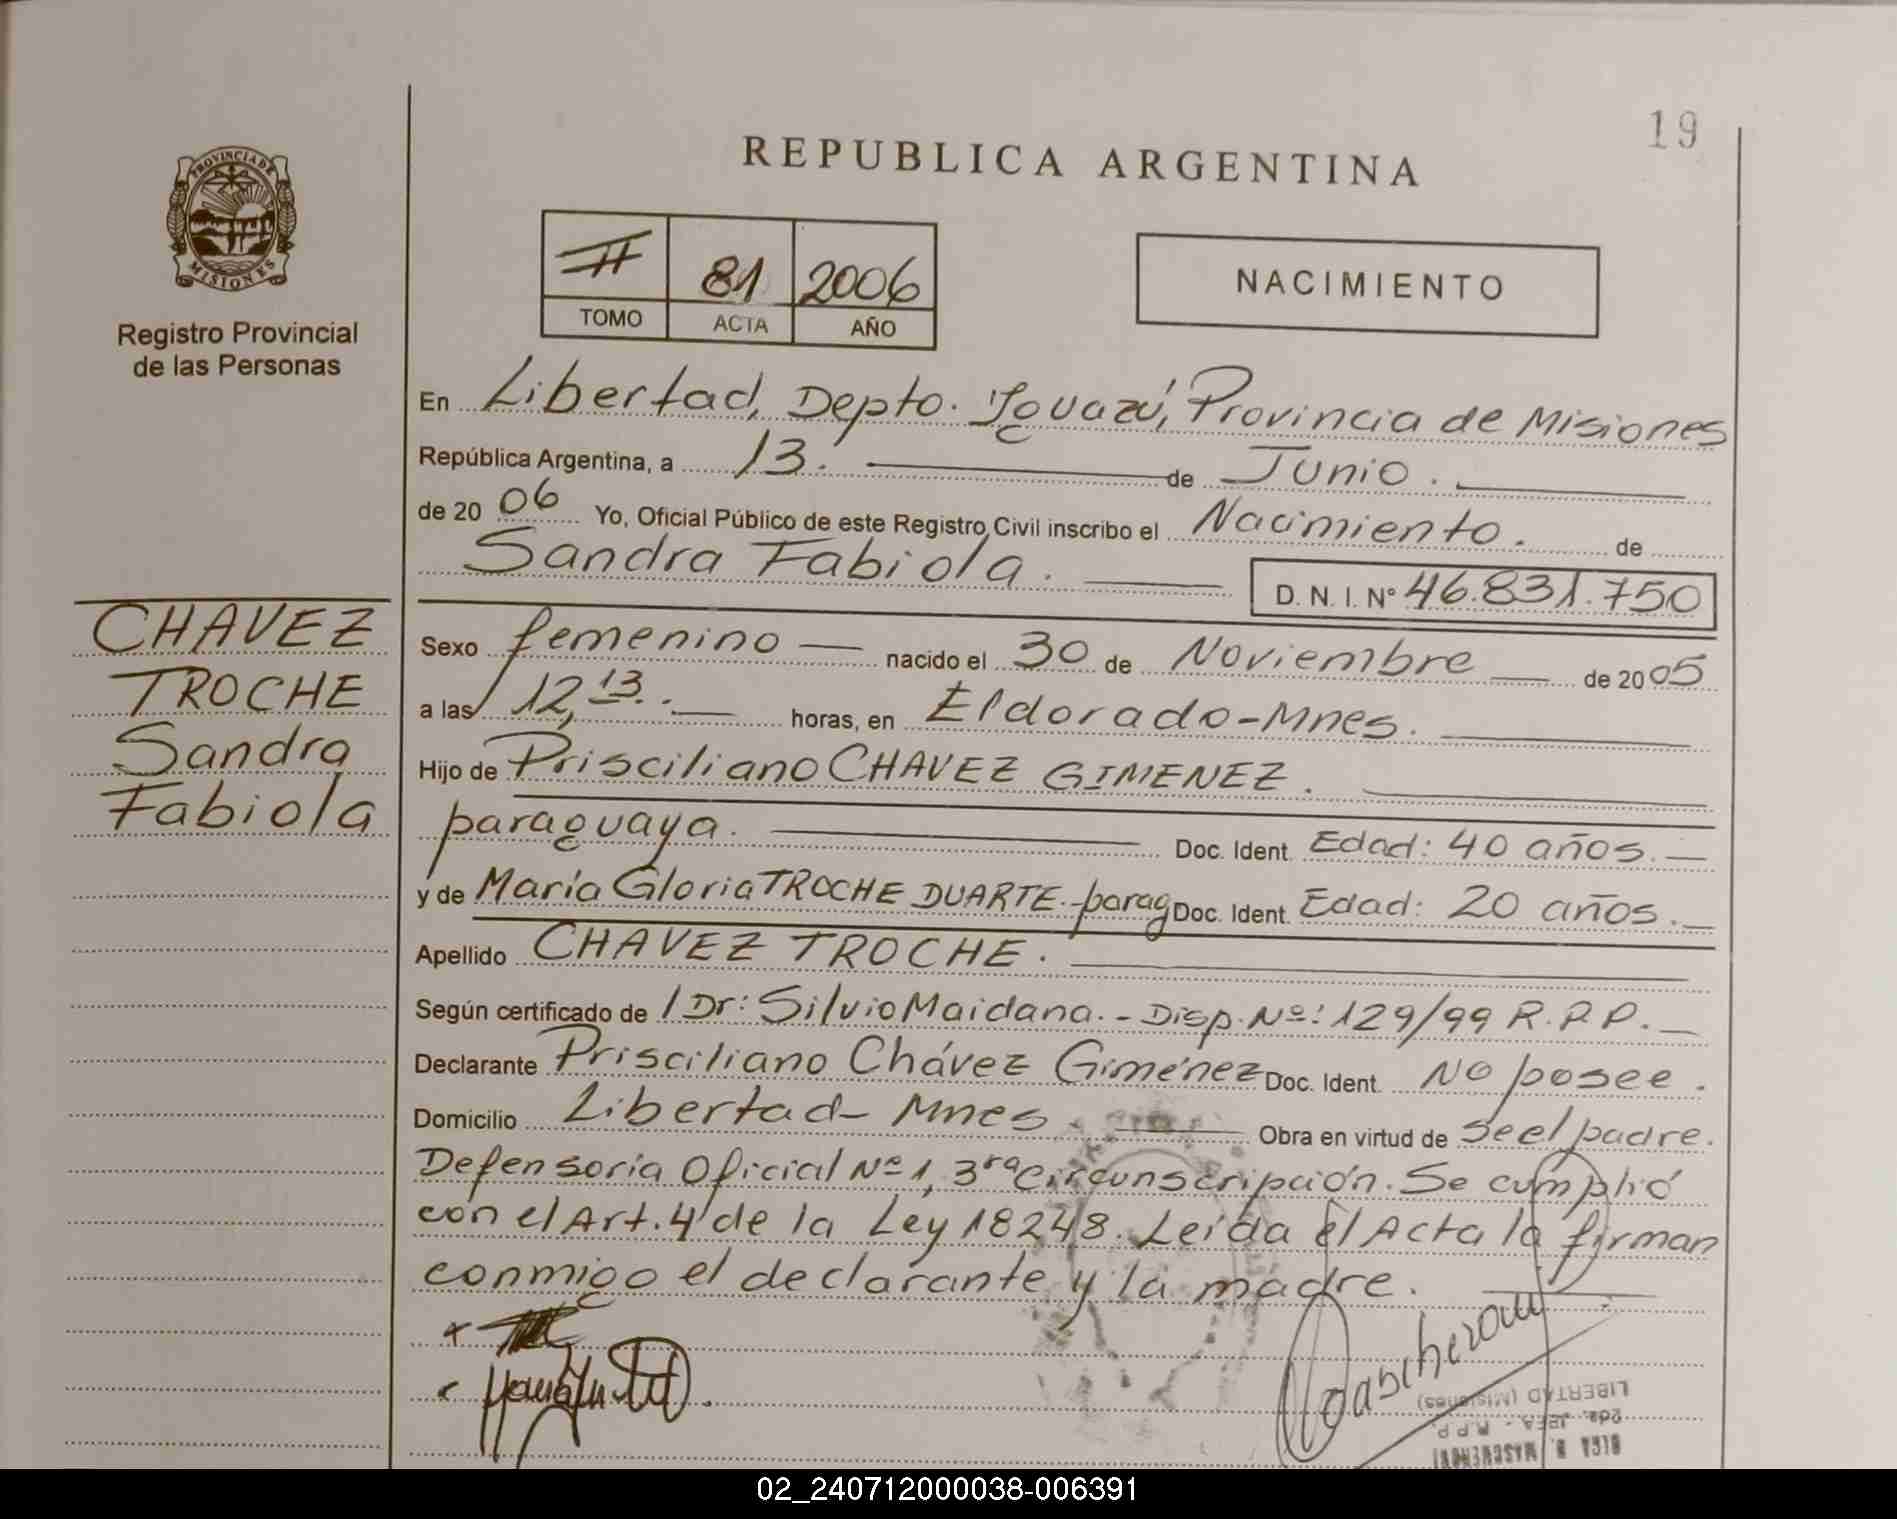 19
REPUBLICA ARGENTINA
PROVINCIA DE
MISIONES
Registro Provincial
de las Personas
II 81 2006
TOMO ACTA AÑO
NACIMIENTO
En Libertad, Depto. Iguazú, Provincia de Misiones
República Argentina, a 13. de Junio.
de 2006 Yo, Oficial Público de este Registro Civil inscribo el Nacimiento. de
Sandra Fabiola. D. N. I. Nº 46.831.750
CHAVEZ
TROCHE
Sandra
Fabiola
Sexo femenino nacido el 30 de Noviembre de 2005
a las 12,13. horas, en Eldorado-Mnes.
Hijo de Prisciliano CHAVEZ GIMENEZ.
paraguaya. Doc. Ident. Edad: 40 años.
y de María Gloria TROCHE DUARTE.-parag Doc. Ident. Edad: 20 años.
Apellido CHAVEZ TROCHE.
Según certificado de / Dr: Silvio Maidana.- Disp. Nº: 129/99 R.P.P.
Declarante Prisciliano Chávez Giménez Doc. Ident. No posee.
Domicilio Libertad- Mnes Obra en virtud de se el padre.
Defensoría Oficial Nº 1, 3ra Circunscripción. Se cumplió
con el Art. 4 de la Ley 18248. Leída el Acta la firman
conmigo el declarante y la madre.
LIBERTAD (Misiones)
2da. JEFA - R.P.P.
02_240712000038-006391